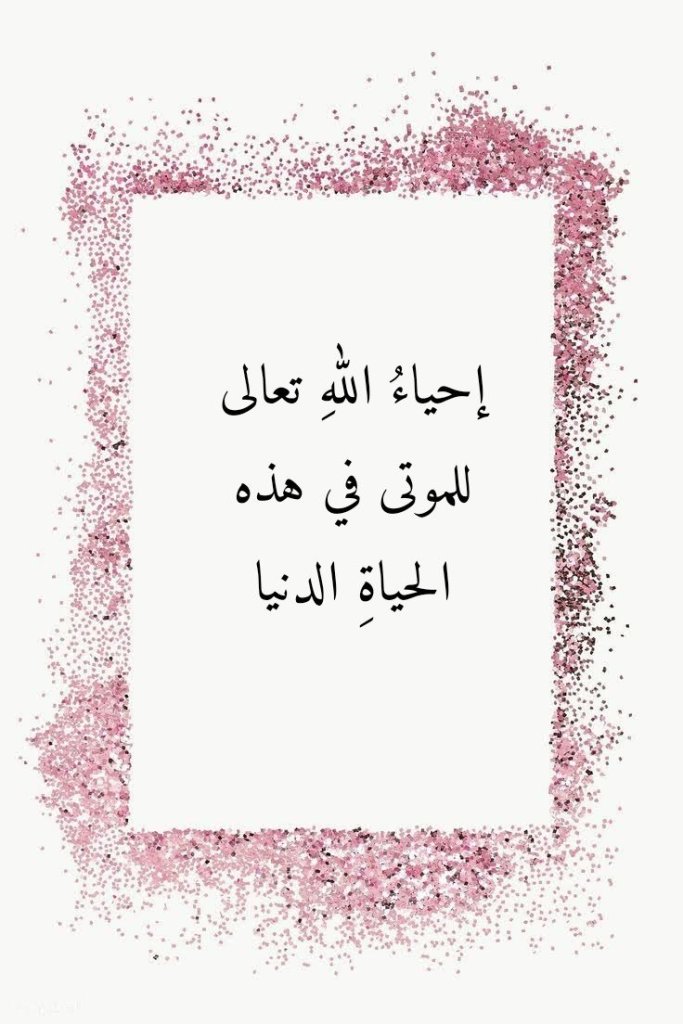 إحياءُ اللهِ تعالى
للموتى في هذه
الحياةِ الدنيا